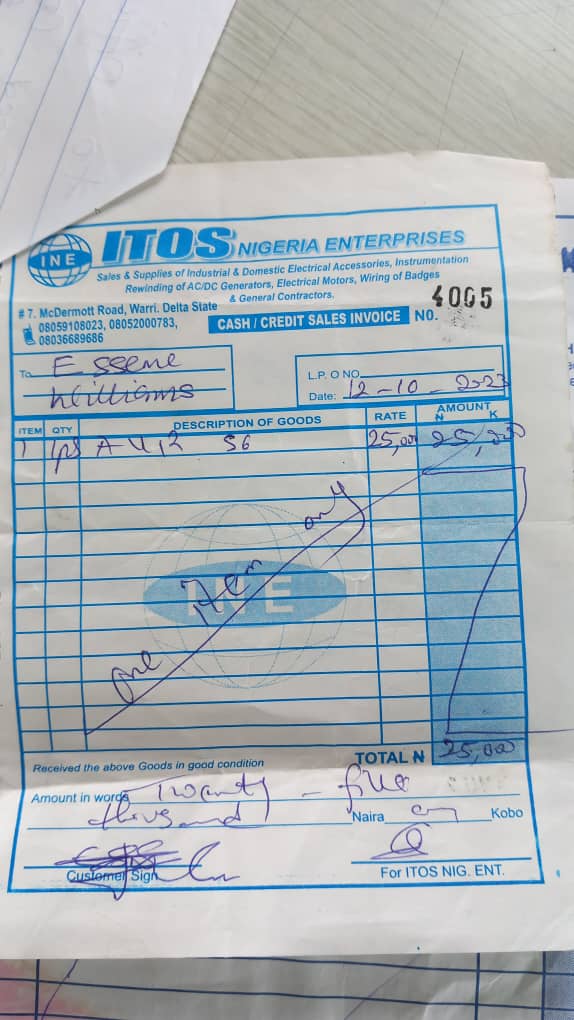 INE
ITOS NIGERIA ENTERPRISES
Sales & Supplies of Industrial & Domestic Electrical Accessories, Instrumentation
Rewinding of AC/DC Generators, Electrical Motors, Wiring of Badges
& General Contractors.
# 7. McDermott Road, Warri. Delta State
08059108023, 08052000783,
08036689686
CASH / CREDIT SALES INVOICE NO. 4005
To Essene
Williams
L.P. O NO.
Date: 12-10-2023
ITEM QTY DESCRIPTION OF GOODS RATE AMOUNT
N K
1 1ps 56 25,000 25,000
one Item only
INE
Received the above Goods in good condition
TOTAL N 25,000
Amount in words Twenty - five
thousand Naira only Kobo
Customer Sign
For ITOS NIG. ENT.